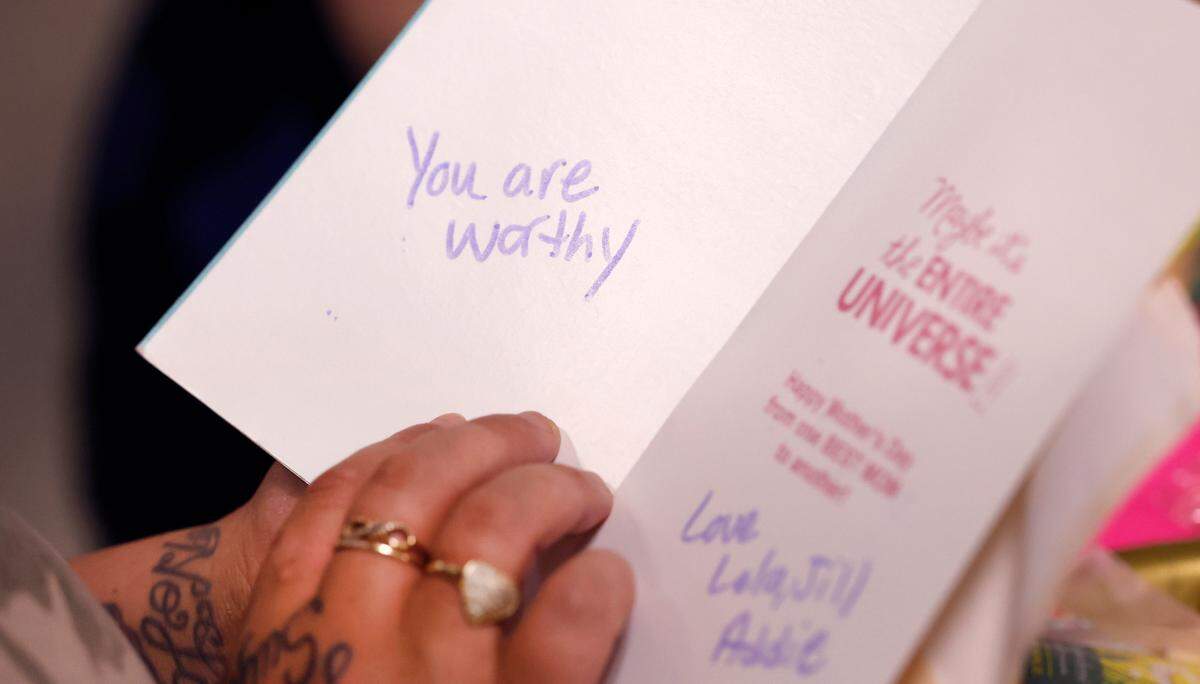 You are
worthy
Maybe it's
the ENTIRE
UNIVERSE!
Happy Mother's Day
from one BEST MOM
to another!
Love
Lela, Jill
Addie